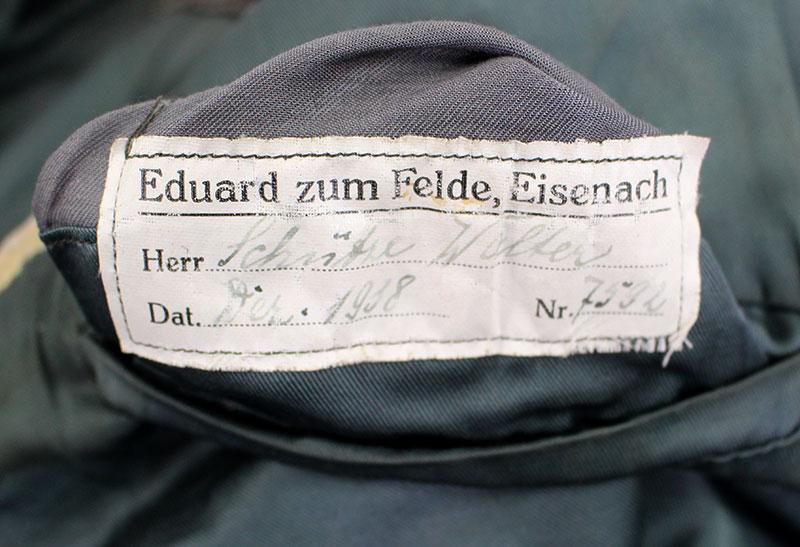 Eduard zum Felde, Eisenach
Herr Schütze Welter
Dat. Dez. 1938 Nr. 7532